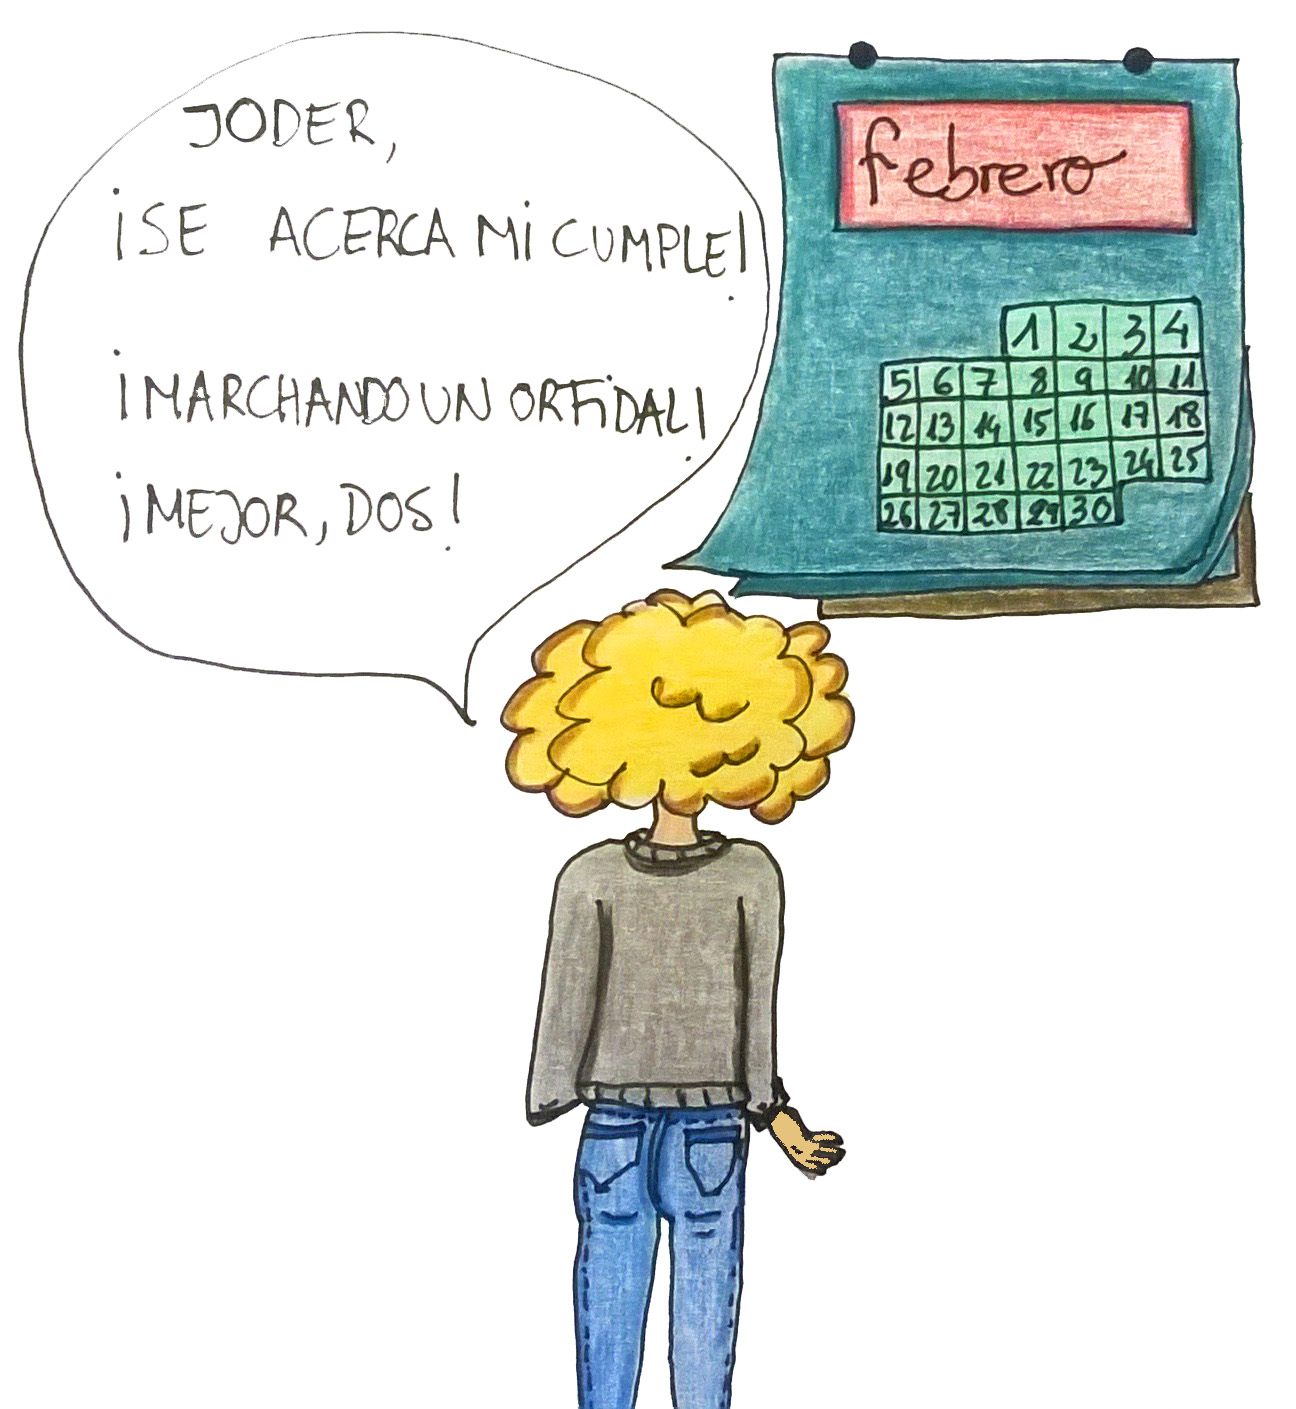 JODER,
¡SE ACERCA MI CUMPLE!
¡MARCHANDO UN ORFIDAL!
¡MEJOR, DOS!
febrero
1 2 3 4
5 6 7 8 9 10 11
12 13 14 15 16 17 18
19 20 21 22 23 24 25
26 27 28 29 30